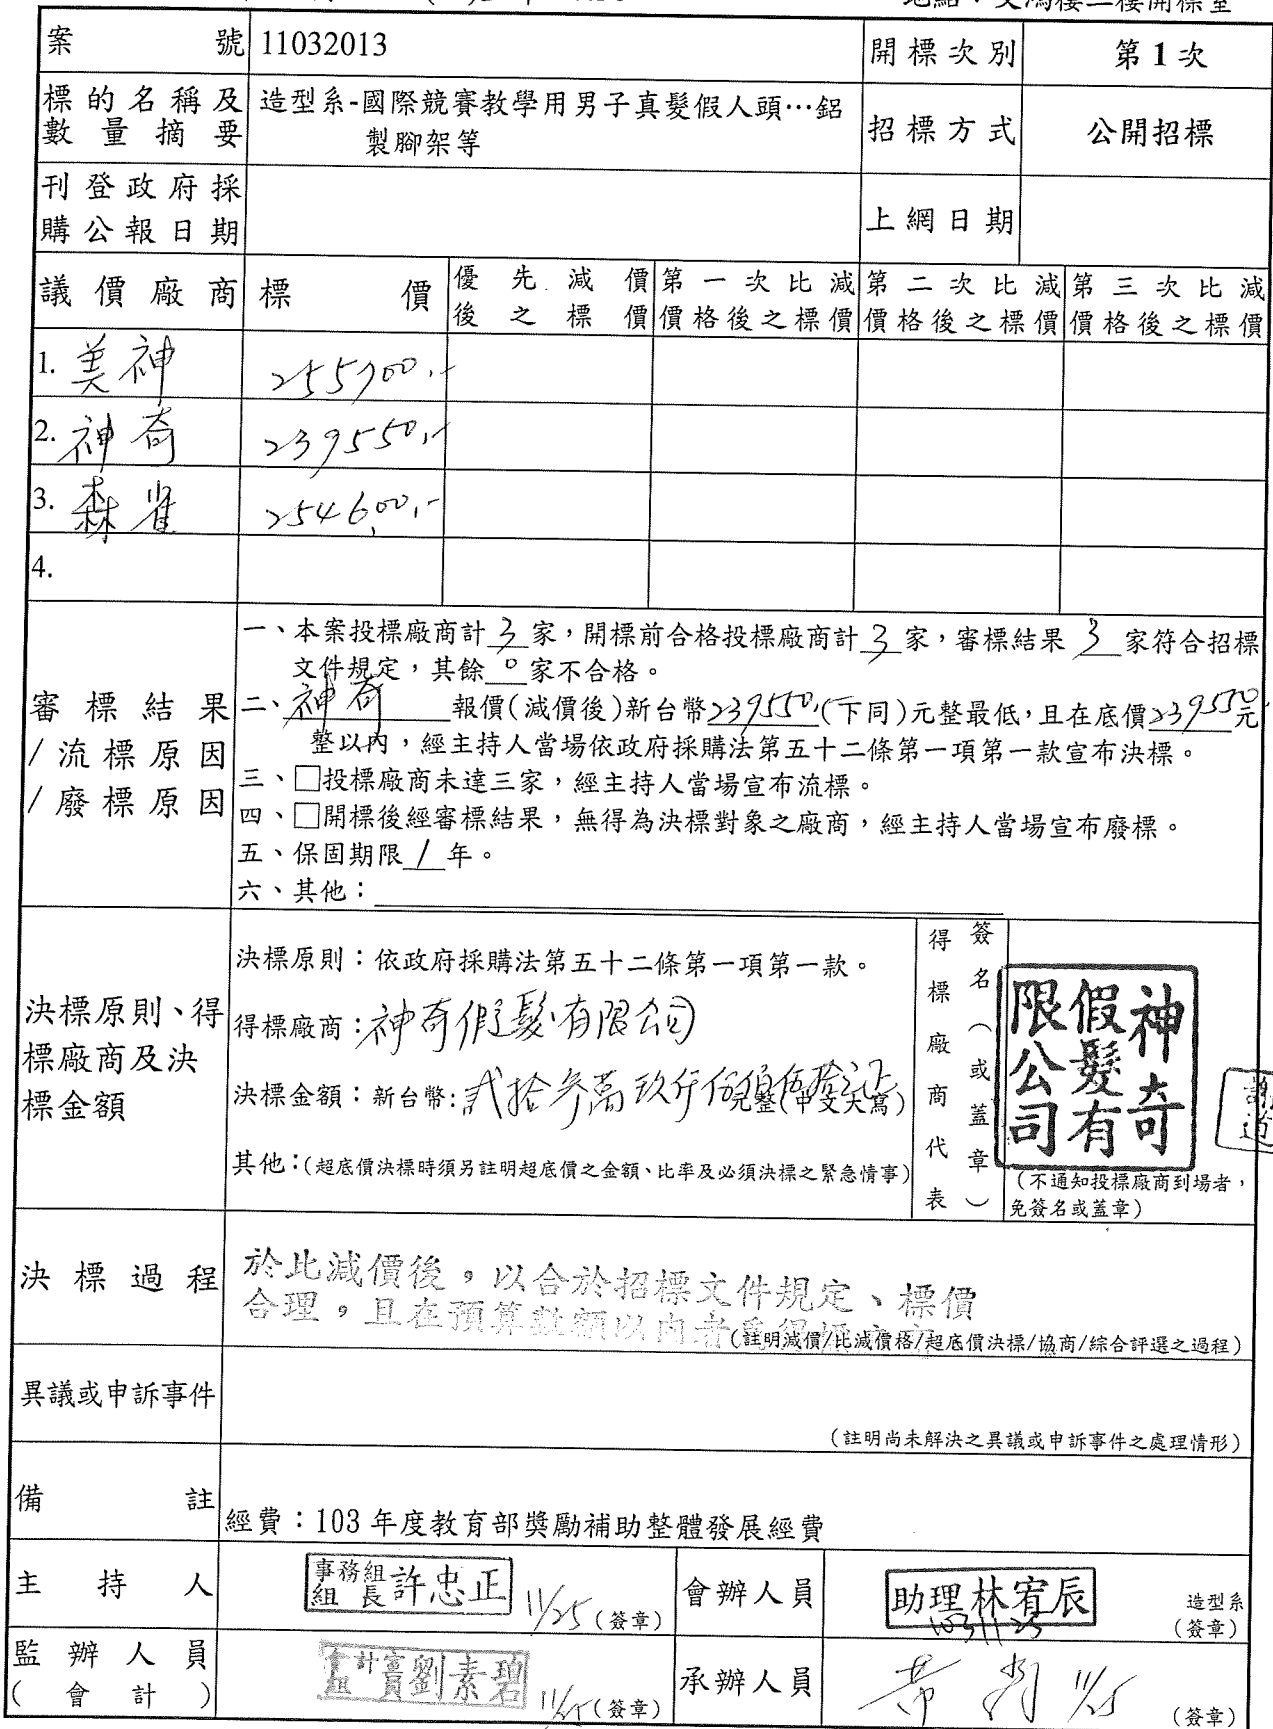 案號 11032013 開標次別 第1次
標的名稱及數量摘要 造型系-國際競賽教學用男子真髮假人頭…鋁製腳架等 招標方式 公開招標
刊登政府採購公報日期 上網日期
議價廠商 標價 優先減價後之標價 第一次比減價格後之標價 第二次比減價格後之標價 第三次比減價格後之標價
1. 美神
2. 神奇 239550.-
3. 森雀 254600.-
4.
審標結果/流標原因/廢標原因
一、本案投標廠商計3家，開標前合格投標廠商計3家，審標結果3家符合招標
文件規定，其餘0家不合格。
二、神奇報價(減價後)新台幣239550.(下同)元整最低，且在底價239550元
整以內，經主持人當場依政府採購法第五十二條第一項第一款宣布決標。
三、□投標廠商未達三家，經主持人當場宣布流標。
四、□開標後經審標結果，無得為決標對象之廠商，經主持人當場宣布廢標。
五、保固期限1年。
六、其他：
決標原則、得標廠商及決標金額
決標原則：依政府採購法第五十二條第一項第一款。
得標廠商：神奇假髮有限公司
決標金額：新台幣:貳拾參萬玖仟伍佰伍拾元整(中文大寫)
其他：(超底價決標時須另註明超底價之金額、比率及必須決標之緊急情事)
得標廠商代表
簽名(或蓋章)
神奇假髮有限公司
(不通知投標廠商到場者，
免簽名或蓋章)
決標過程
於此減價後，以合於招標文件規定、標價
合理，且在預算數額以內者為得標
(註明減價/比減價格/超底價決標/協商/綜合評選之過程)
異議或申訴事件
(註明尚未解決之異議或申訴事件之處理情形)
備註 經費：103年度教育部獎勵補助整體發展經費
主持人 事務組組長許忠正 11/25 (簽章) 會辦人員 助理林宥辰 1031125 造型系(簽章)
監辦人員(會計) 劉素碧 11/25 (簽章) 承辦人員 11/25 (簽章)